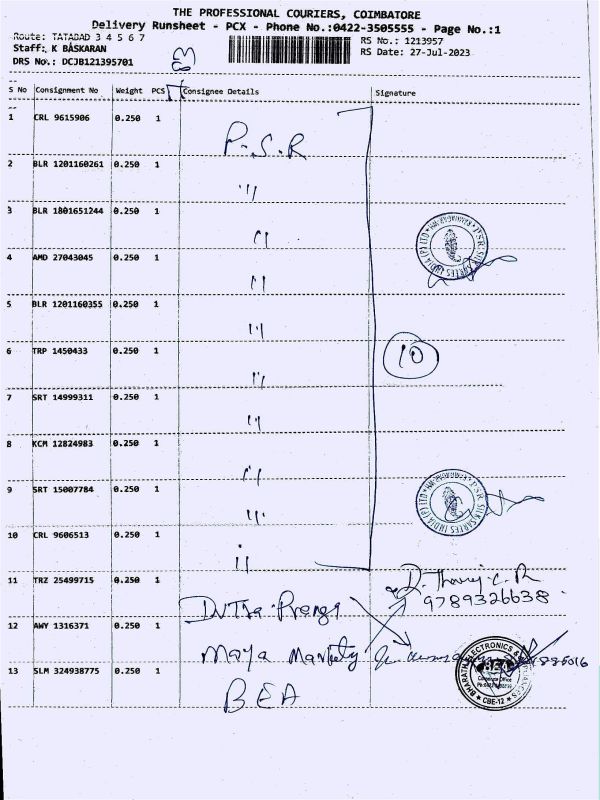 THE PROFESSIONAL COURIERS, COIMBATORE
Delivery Runsheet - PCX - Phone No.:0422-3505555 - Page No.:1
Route: TATABAD 3 4 5 6 7
Staff: K BASKARAN
DRS No.: DCJB121395701
RS No.: 1213957
RS Date: 27-Jul-2023
S No Consignment No Weight PCS Consignee Details Signature
1 CRL 9615906 0.250 1 P.S.R
2 BLR 1201160261 0.250 1 "
3 BLR 1801651244 0.250 1 "
4 AMD 27043045 0.250 1 "
5 BLR 1201160355 0.250 1 "
6 TRP 1450433 0.250 1 "
10
7 SRT 14999311 0.250 1 "
8 KCM 12824983 0.250 1 "
9 SRT 15007784 0.250 1 "
10 CRL 9606513 0.250 1 "
11 TRZ 25499715 0.250 1
9789326638
12 AWY 1316371 0.250 1 Maya
13 SLM 324938775 0.250 1 BEA
PSR SILK SAREES INDIA (P) LTD
PSR SILK SAREES INDIA (P) LTD
BEA
CBE-12